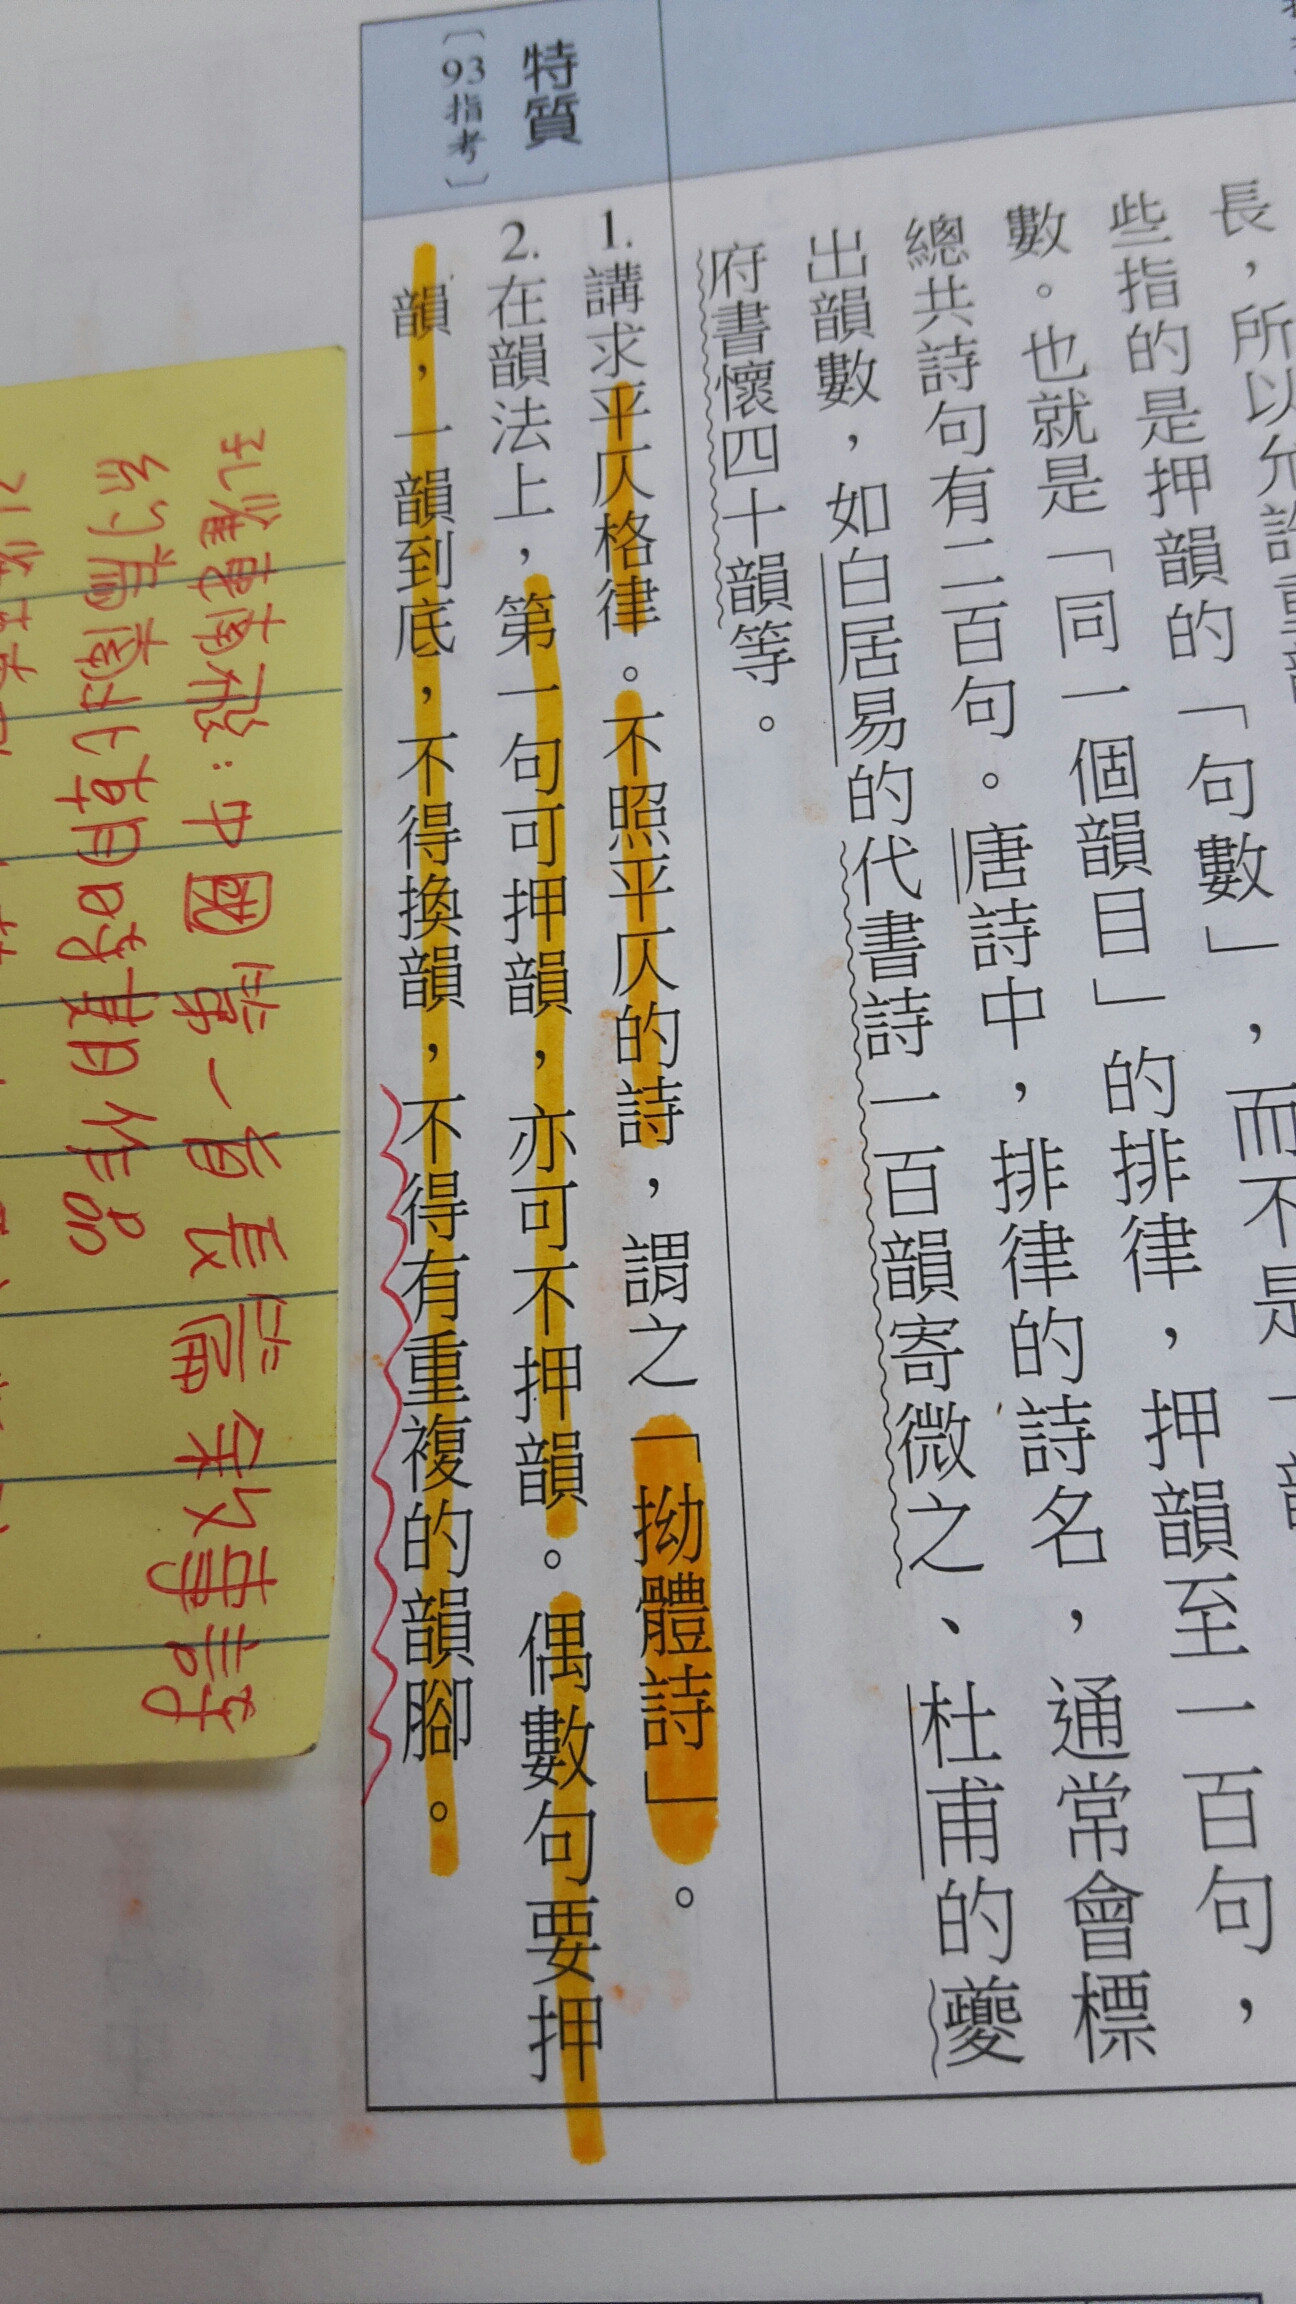 長，所以允許重韻
些指的是押韻的「句數」，而不是一韻
數。也就是「同一個韻目」的排律，押韻至一百句，
總共詩句有二百句。唐詩中，排律的詩名，通常會標
出韻數，如白居易的代書詩一百韻寄微之、杜甫的夔
府書懷四十韻等。
特質
〔93指考〕
1.講求平仄格律。不照平仄的詩，謂之「拗體詩」。
2.在韻法上，第一句可押韻，亦可不押韻。偶數句要押
韻，一韻到底，不得換韻，不得有重複的韻腳。
孔雀東南飛：中國第一首長篇敘事詩
約為南北朝時期作品